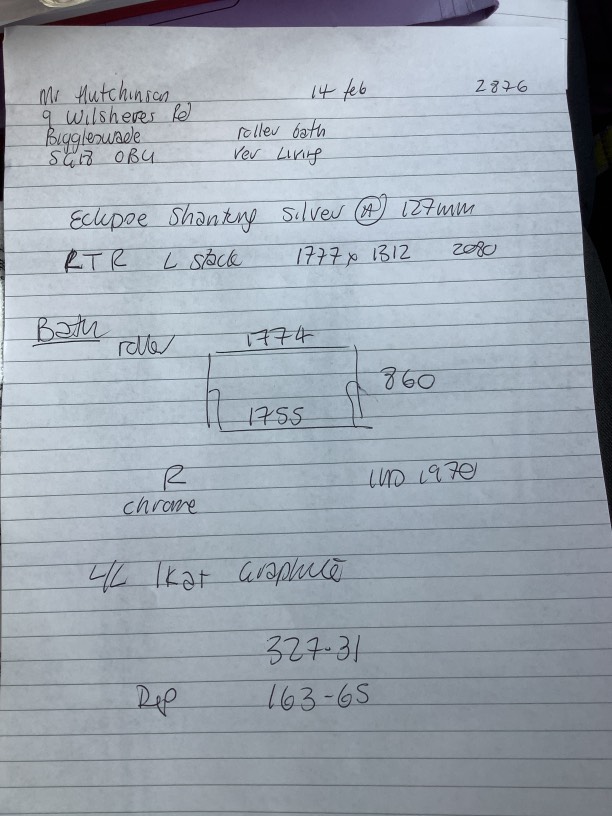 Mr Hutchinson 14 feb 2876
9 Wilsheres Rd
Biggleswade roller bath
SG18 0BU Ver Living
Eclipse Shantung Silver (A) 127mm
RTR L stack 1777 x 1312 2080
Bath
roller 1774
860
1755
R 1970
chrome
Graphite
327-31
Dep 163-65